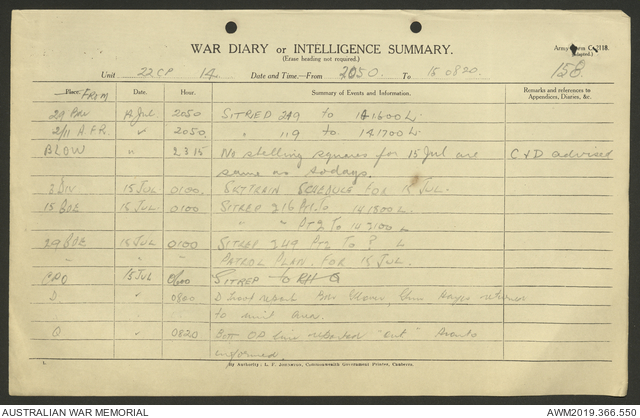 WAR DIARY or INTELLIGENCE SUMMARY.
(Erase heading not required.)
Army Form C. 2118.
(Adapted.)
158
Unit 22 CP 14 Date and Time—From 2050 To 15 0820
Place From Date. Hour. Summary of Events and Information. Remarks and references to Appendices, Diaries, &c.
29 Bde 14 Jul 2050 SITREP 249 to 141600 L.
2/11 A.F.R. " 2050 " 119 to 141700 L.
BLOW " 2315 No shelling squares for 15 Jul are C & D advised
same as todays.
3 DIV 15 JUL 0100 SKYTRAIN SCHEDULE FOR 15 JUL.
15 BDE 15 JUL 0100 SITREP 216 Pt 1 To 141800 L
" " Pt 2 To L
29 BDE 15 JUL 0100 SITREP 249 Pt 2 To ? L
" " PATROL PLAN FOR 15 JUL.
CPO 15 JUL 0600 SITREP to RHQ
D " 0800 D Troop report
to unit area.
Q " 0820 OP line reported "out"
informed.
By Authority: L. F. Johnston, Commonwealth Government Printer, Canberra.
AUSTRALIAN WAR MEMORIAL
AWM2019.366.550